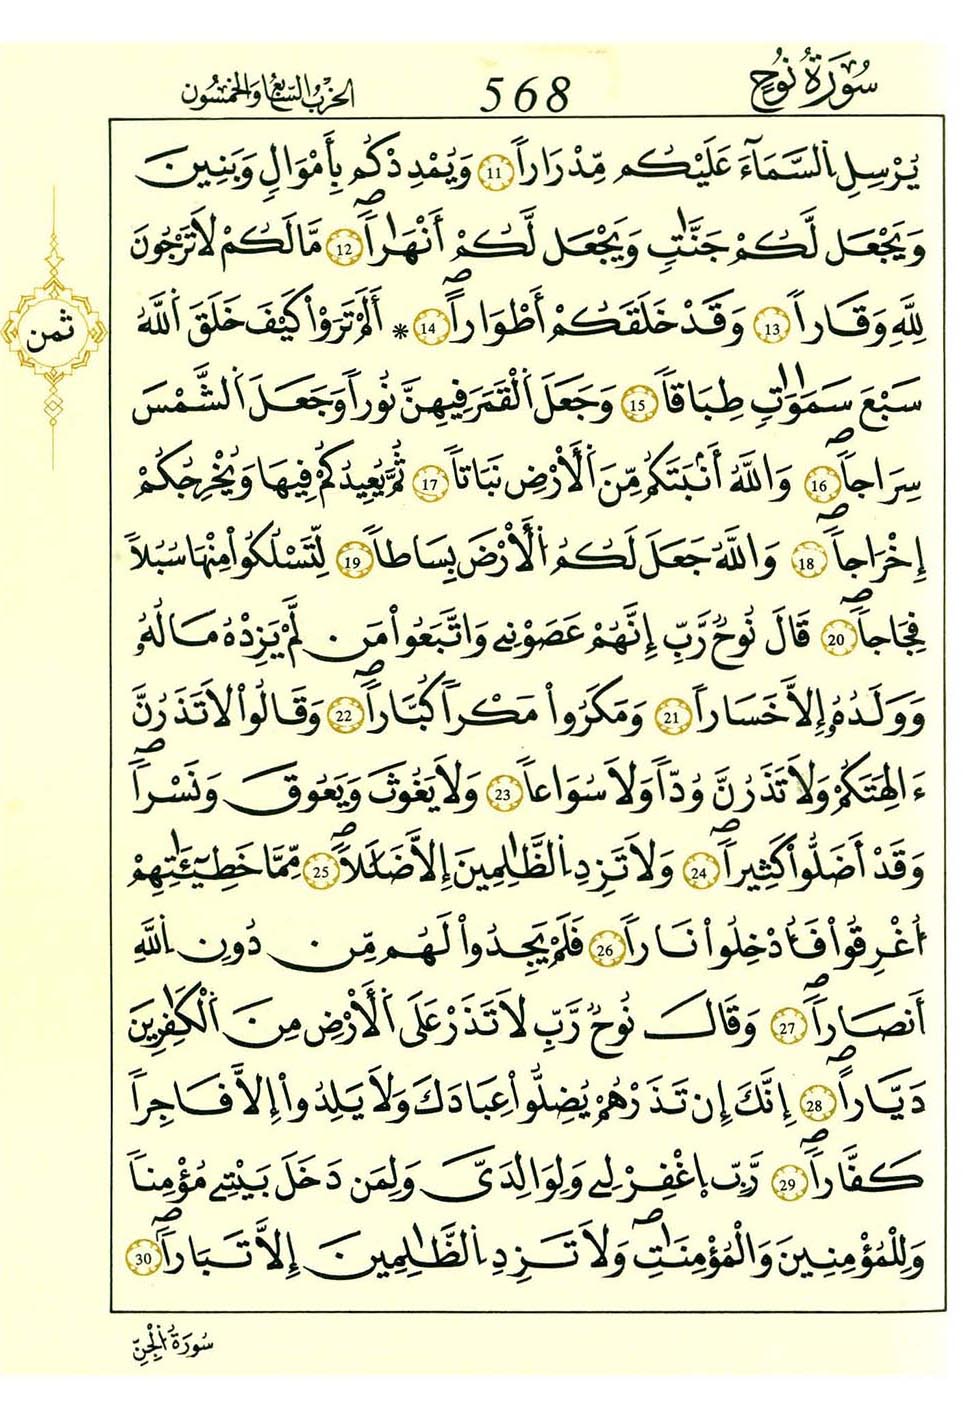 سُورَةُ نُوحٍ
568
الحزب السابع والخمسون
يُرْسِلِ اِ۬لسَّمَآءَ عَلَيْكُم مِّدْرَاراٗ 11 وَيُمْدِدْكُم بِأَمْوَالٖ وَبَنِينَ
وَيَجْعَل لَّكُمْ جَنَّٰتٖ وَيَجْعَل لَّكُمُۥٓ أَنْهَٰراٗۖ 12 مَّا لَكُمْ لَا تَرْجُونَ
لِلهِ وَقَاراٗ 13 وَقَدْ خَلَقَكُمُۥٓ أَطْوَاراًۖ 14 * اَلَمْ تَرَوْاْ كَيْفَ خَلَقَ اَ۬للَّهُ
ثمن
سَبْعَ سَمَٰوَٰتٖ طِبَاقاٗ 15 وَجَعَلَ اَ۬لْقَمَرَ فِيهِنَّ نُوراٗ وَجَعَلَ اَ۬لشَّمْسَ
سِرَاجاٗۖ 16 وَاللَّهُ أَنۢبَتَكُم مِّنَ اَ۬لْأَرْضِ نَبَاتاٗ 17 ثُمَّ يُعِيدُكُمْ فِيهَا وَيُخْرِجُكُمُۥٓ
إِخْرَاجاٗۖ 18 وَاللَّهُ جَعَلَ لَكُمُ اُ۬لْأَرْضَ بِسَاطاٗ 19 لِّتَسْلُكُواْ مِنْهَا سُبُلاٗ
فِجَاجاٗۖ 20 قَالَ نُوحٞ رَّبِّ إِنَّهُمْ عَصَوْنِے وَاتَّبَعُواْ مَن لَّمْ يَزِدْهُ مَالُهُۥ
وَوَلَدُهُۥٓ إِلَّا خَسَاراٗ 21 وَمَكَرُواْ مَكْراٗ كُبَّاراٗۖ 22 وَقَالُواْ لَا تَذَرُنَّ
ءَالِهَتَكُمْ وَلَا تَذَرُنَّ وُدّاٗ وَلَا سُوَاعاٗ 23 وَلَا يَغُوثَ وَيَعُوقَ وَنَسْراٗۖ
وَقَدْ أَضَلُّواْ كَثِيراٗۖ 24 وَلَا تَزِدِ اِ۬لظَّٰلِمِينَ إِلَّا ضَلَٰلاٗۖ 25 مِّمَّا خَطِيٓـَٰٔتِهِمُۥٓ
أُغْرِقُواْ فَأُدْخِلُواْ نَاراٗ 26 فَلَمْ يَجِدُواْ لَهُم مِّن دُونِ اِ۬للَّهِ
أَنصَاراٗۖ 27 وَقَالَ نُوحٞ رَّبِّ لَا تَذَرْ عَلَى اَ۬لْأَرْضِ مِنَ اَ۬لْكَٰفِرِينَ
دَيَّاراًۖ 28 إِنَّكَ إِن تَذَرْهُمْ يُضِلُّواْ عِبَادَكَ وَلَا يَلِدُوٓاْ إِلَّا فَاجِراٗ
كَفَّاراٗۖ 29 رَّبِّ اِ۪غْفِرْ لِے وَلِوَٰلِدَيَّ وَلِمَن دَخَلَ بَيْتِے مُؤْمِناٗ
وَلِلْمُؤْمِنِينَ وَالْمُؤْمِنَٰتِۖ وَلَا تَزِدِ اِ۬لظَّٰلِمِينَ إِلَّا تَبَاراٗۖ 30
سُورَةُ اُ۬لْجِنِّ